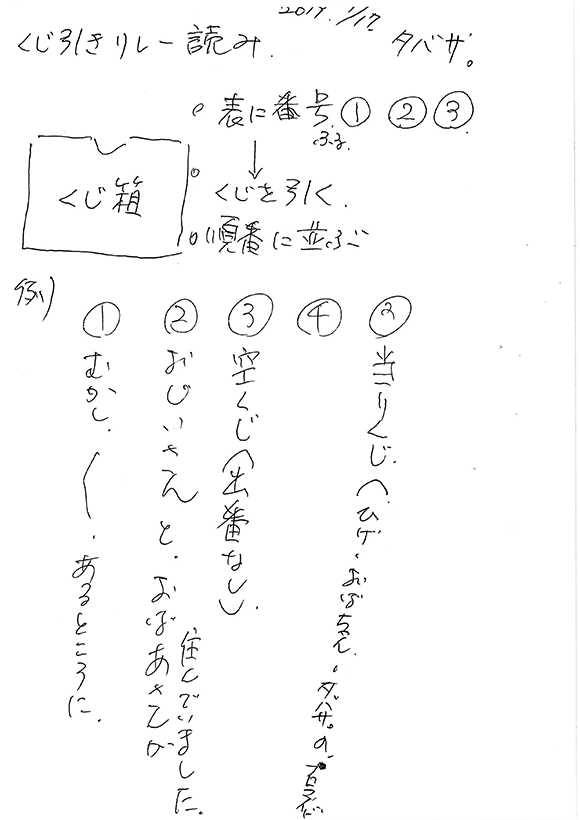 2017. 1/17
くじ引きリレー読み.
タバサ。
○ 表に番号 ① ② ③
ふる.
↓
くじ箱
○ くじを引く.
○ 順番に並ぶ
例)
① むかし、〱. あるところに.
② おじいさんと、おばあさんが
住んでいました。
③ 空くじ(出番なし).
④
② 当りくじ.(ひげ・おばちゃん・タバサ。の、ブロマイド